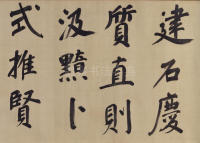 建石慶
質直則
汲黯卜
式推賢